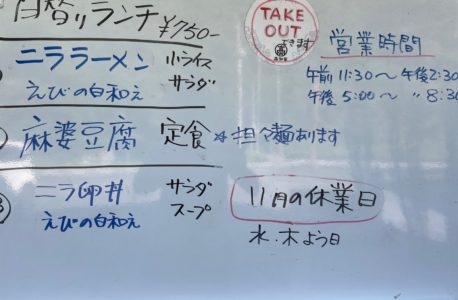 日替りランチ ¥750-
ニララーメン 小ライス
えびの白和え サラダ
麻婆豆腐 定食 ※担々麺あります
ニラ卵丼 サラダ
えびの白和え スープ
TAKE
OUT
できます
営業時間
午前11:30～午後2:30
午後5:00～〃8:30
11月の休業日
水・木よう日